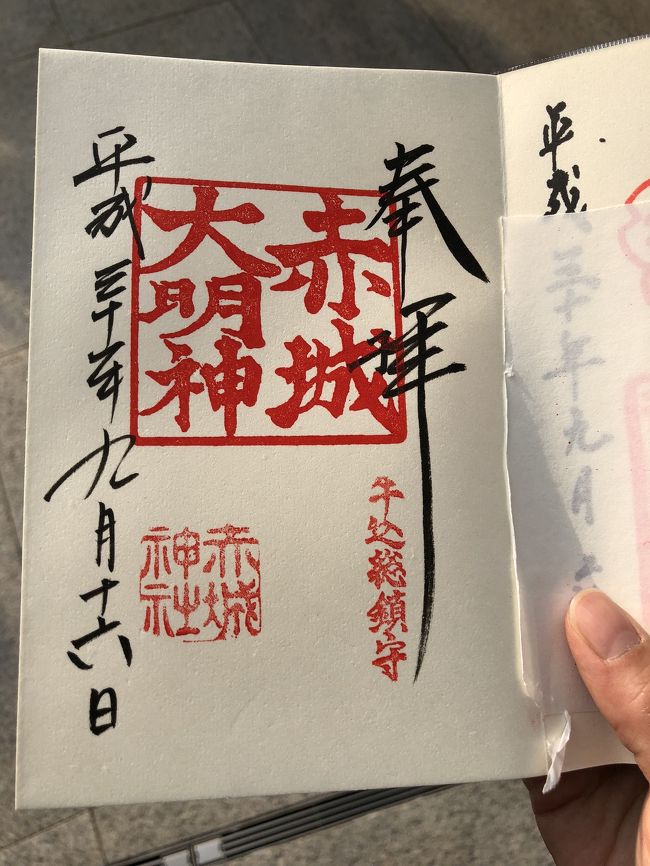 奉拝
赤城
大明神
牛込総鎮守
赤城
神社
平成三十年九月十六日
平成三十年九月